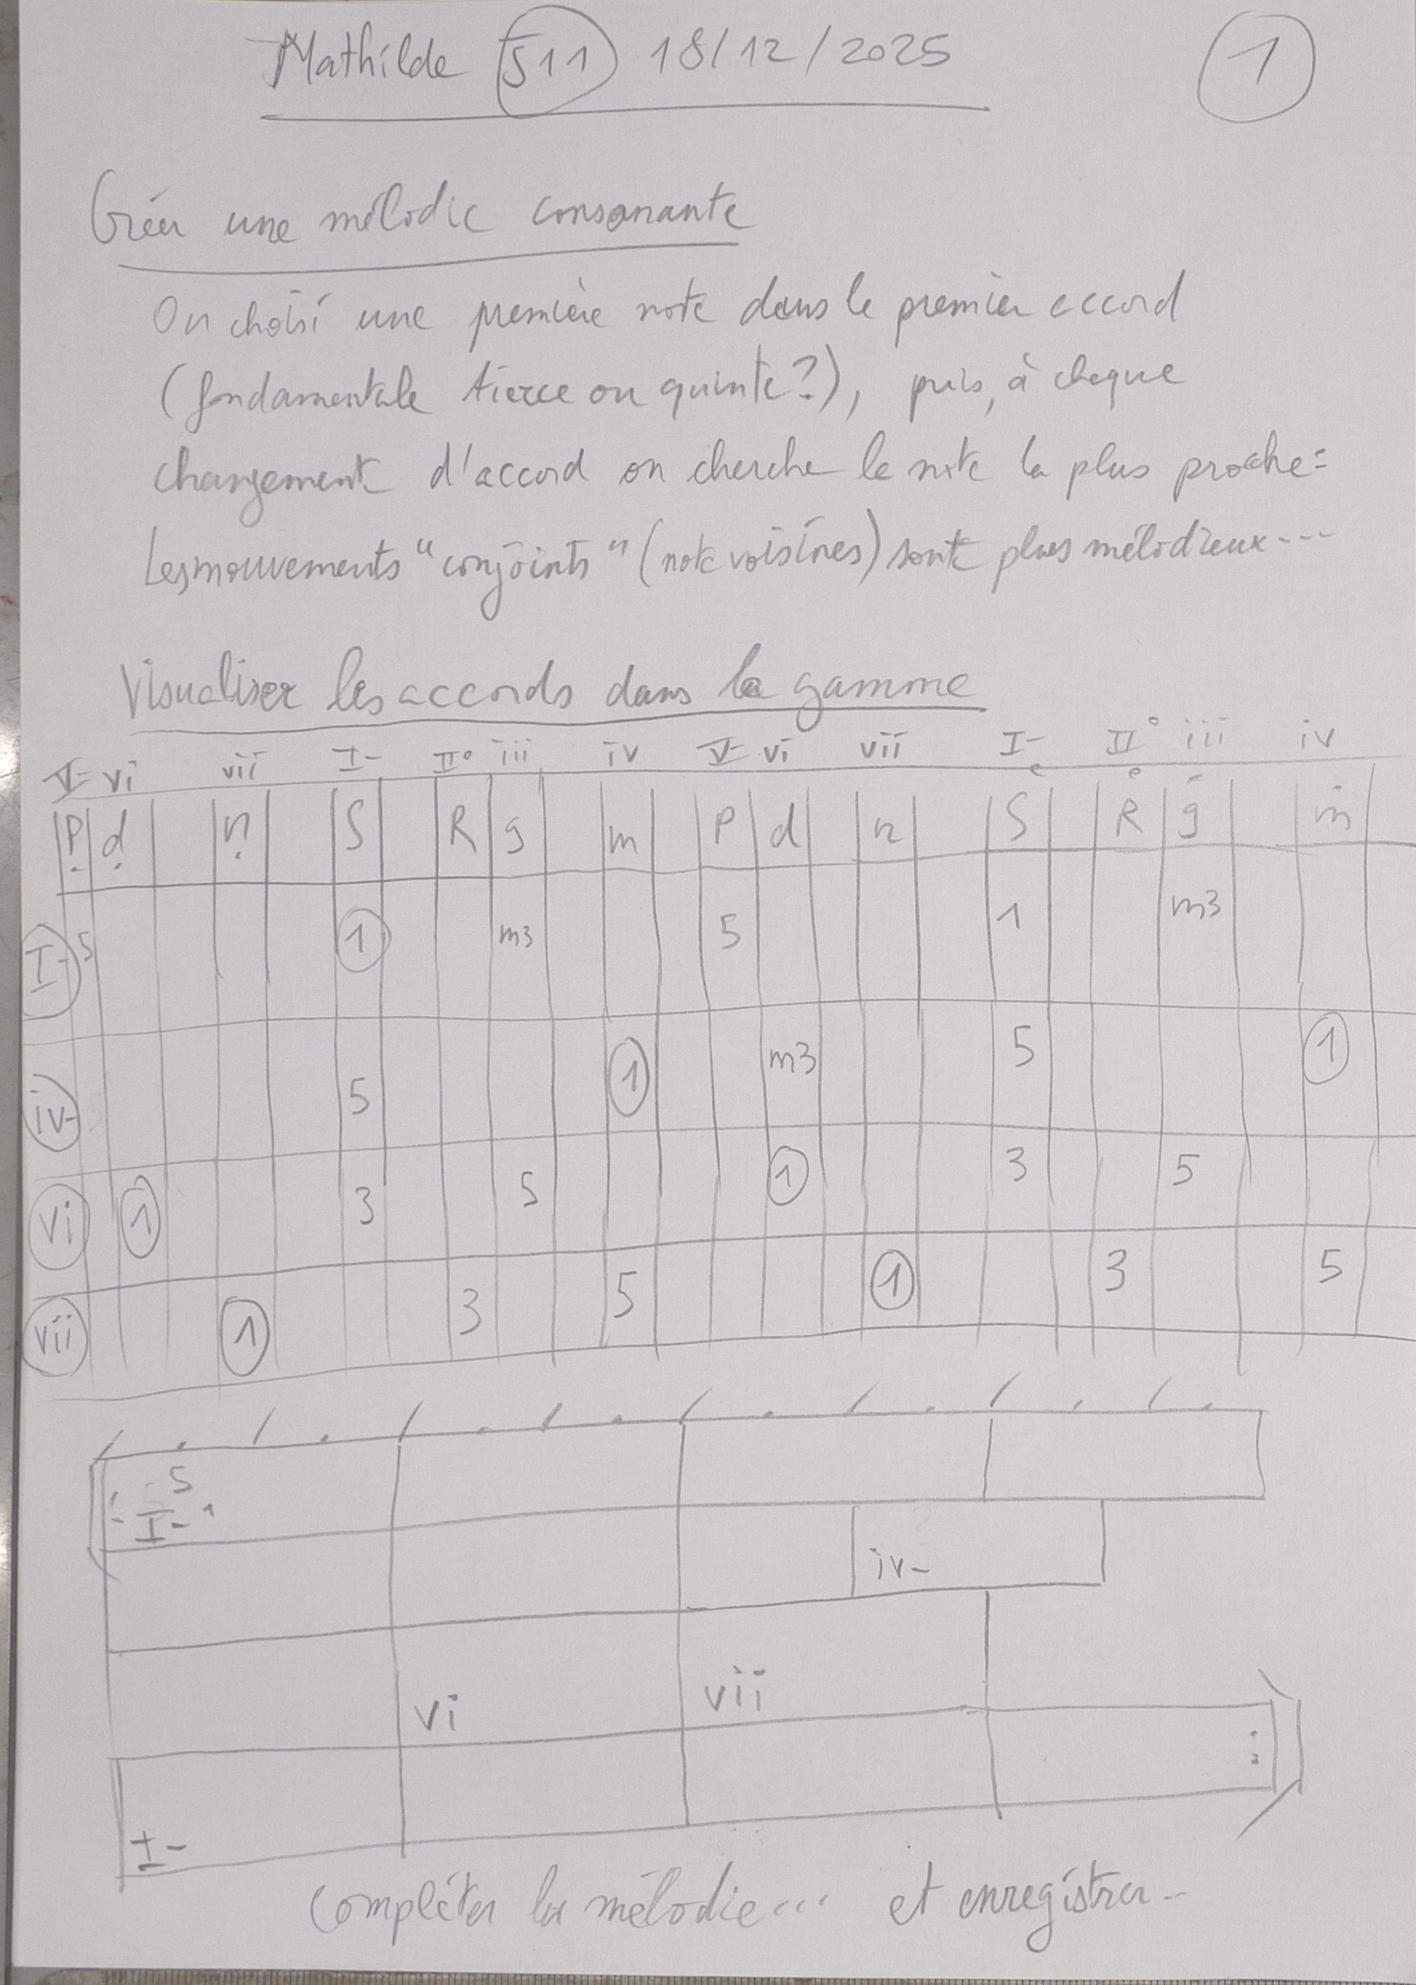 Mathilde S11 18/12/2025 1
Créer une mélodie consonante
On choisi une première note dans le premier accord
(fondamentale tierce ou quinte?), puis, à chaque
changement d'accord on cherche la note la plus proche:
Les mouvements "conjoints" (note voisines) sont plus mélodieux...
Visualiser les accords dans la gamme
V- vi vii I- II° iii iv V- vi vii I- II° iii iv
P d n S R g m P d n S R g m
I- 5 1 m3 5 1 m3
iv- 5 1 m3 5 1
vi 1 3 5 1 3 5
vii 1 3 5 1 3 5
5
I- 1
iv-
vi vii
I-
compléter la mélodie... et enregistrer..